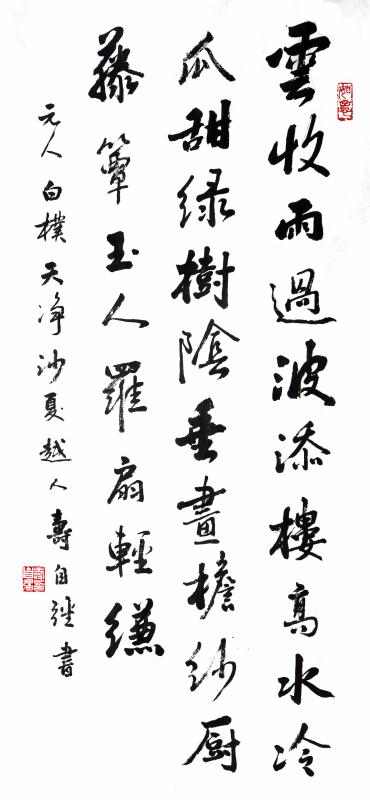 雲收雨過波添樓高水冷
瓜甜绿樹陰垂畫檐纱厨
藤簟玉人羅扇輕縑
元人白樸天净沙夏越人壽自
書